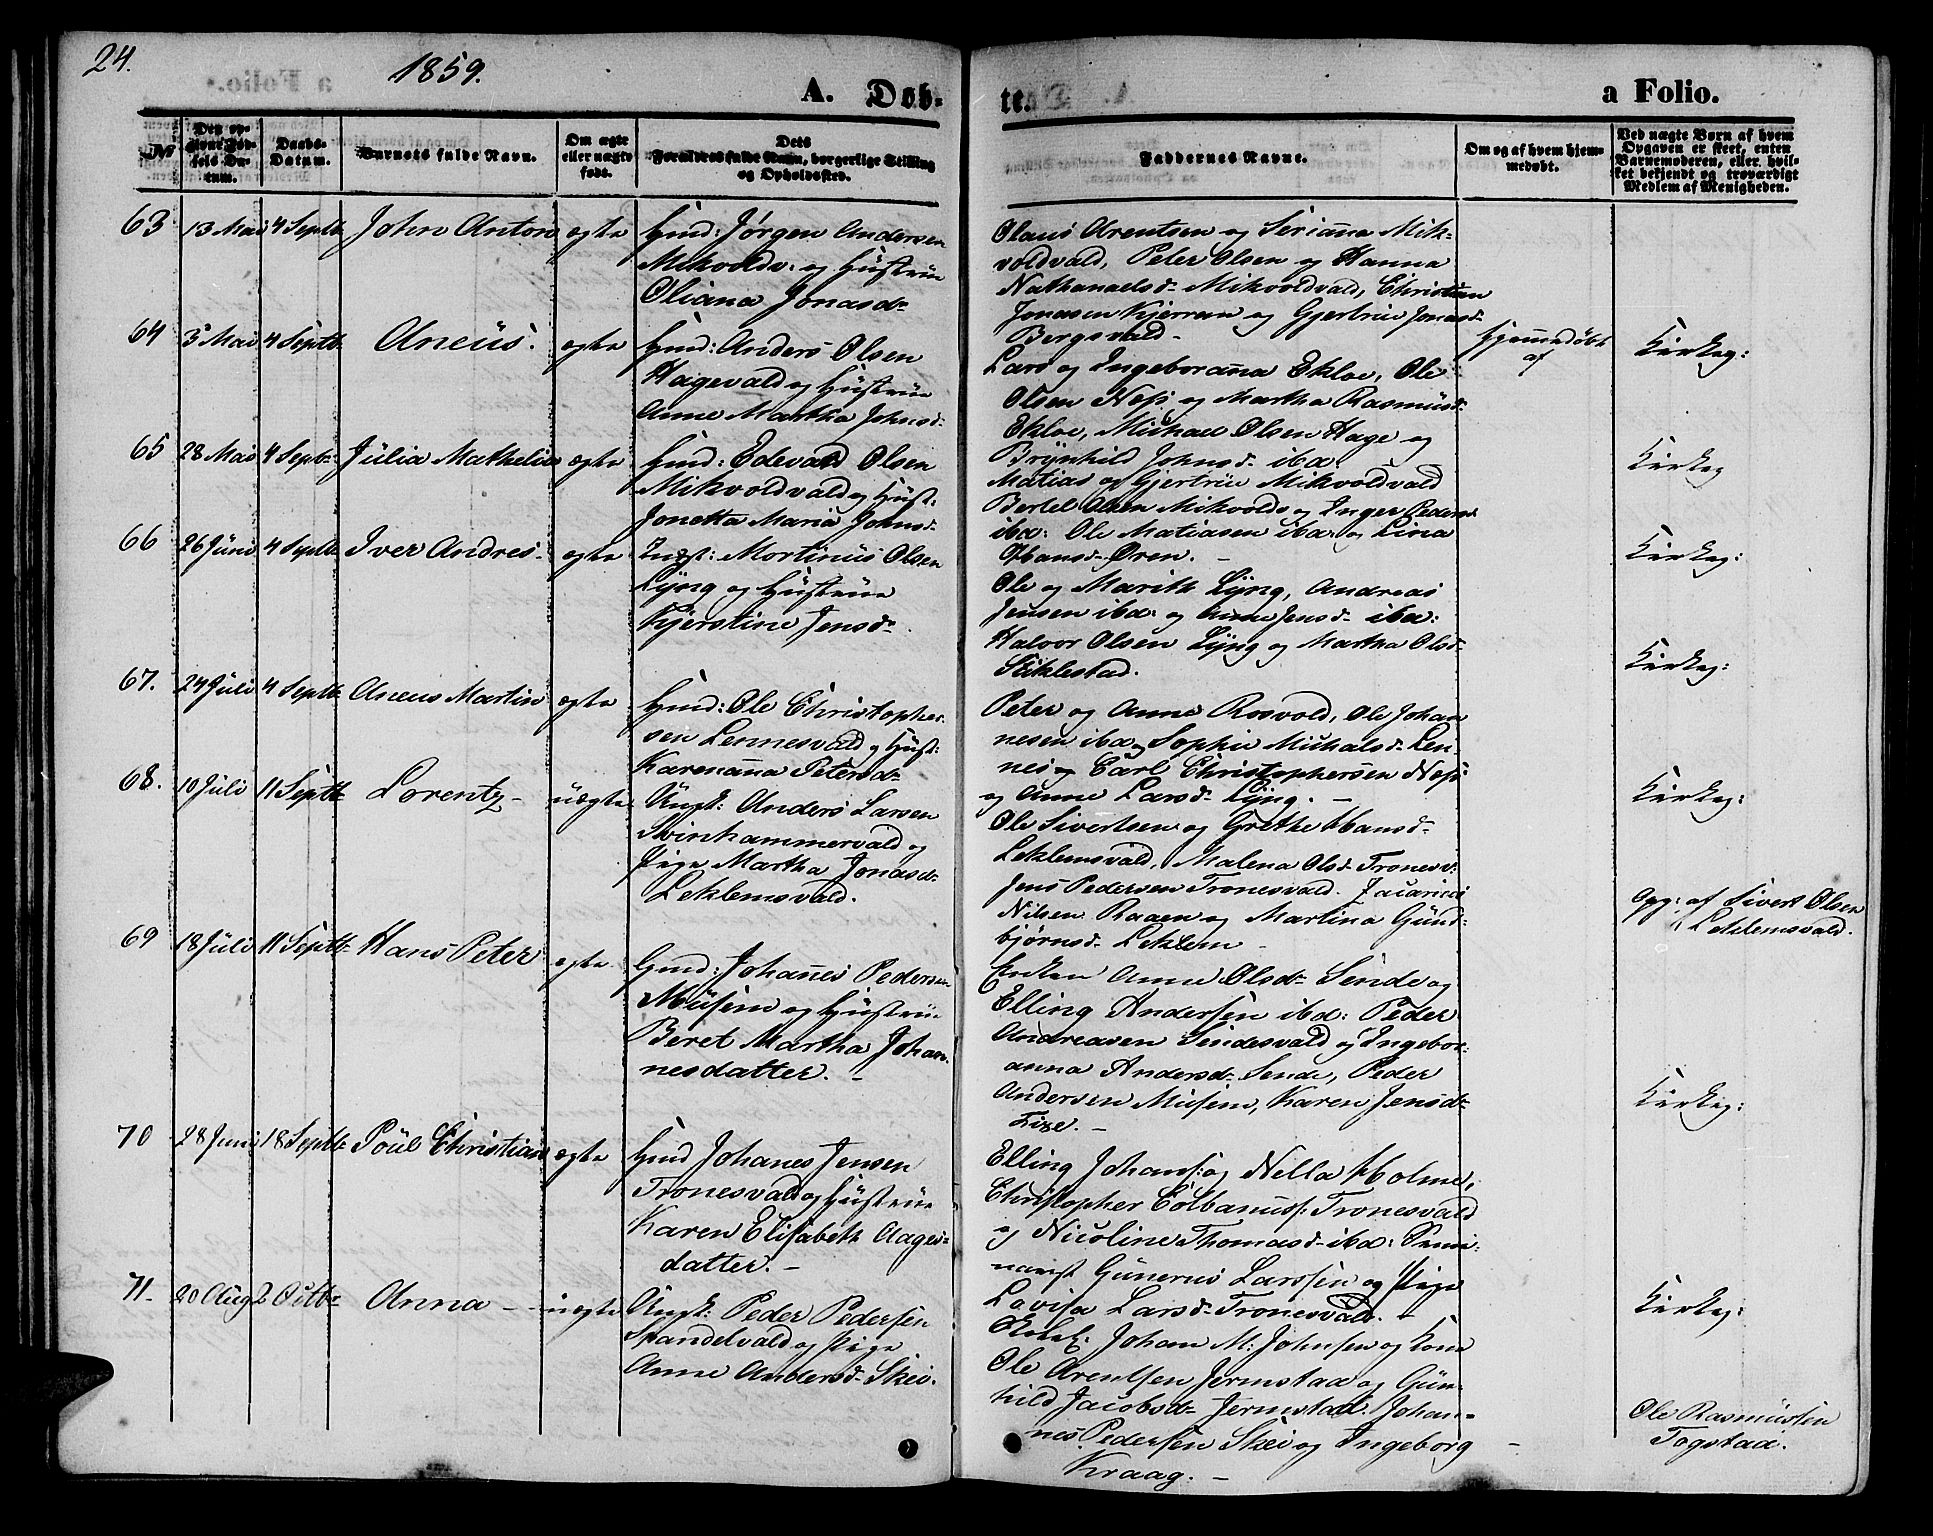 24.
1859.
A. Døb-
te.
a Folio.
№
Den op-
givne Fød-
sels Da-
tum.
Daabs-
Datum.
Barnets fulde Navn.
Om ægte
eller uægte
født.
Dets
Forældres fulde Navn, borgerlige Stilling
og Opholdssted.
Faddernes Navne.
Om og af hvem hjem-
medøbt.
Ved uægte Børn af hvem
Opgaven er skeet, enten
Barnemoderen, eller hvil-
ket bekjendt og troværdigt
Medlem af Menigheden.
63 13 Mai 4 Septb John Anton ægte Gmd: Jørgen Andersen
Mikvoldv: og Hustrue
Oliana Jonasd
Olaus Arentsen og Seriana Mik-
voldvald, Peter Olsen og Hanna
Nathanaelsd Mikvoldvald, Christian
Jonasen Kjerran og Gjertrue Jonasd
Bergsvald
64 3 Mai 4 Septb Aneüs. ægte Gmd: Anders Olsen
Hagevald og Hüstrüe
Anne Martha Johnsd
Lars og Ingeborana Ekloe, Ole
Olsen Ness og Martha Rasmüsd
Ekloe, Michael Olsen Hage og
Brÿnhild Johnsd iba:
Hjemmedöbt
af
Kirkeg:
65 28 Mai 4 Septb Jülia Mathelie ægte Gmd: Edevald Olsen
Mikvoldvald og Hüst:
Jonetta Maria Johnsd
Matias og Gjertrüe Mikvoldvald
Bertel Olsen Mikvolds og Inger Pedersd
iba: Ole Matiasen iba: og Lina
Hansd Øren.
Kirkeg
66 26 Jüni 4 Septb Iver Andres ægte Indst: Mortinüs Olsen
Lÿng og Hüstrüe
Kjerstine Jensd
Ole og Marith Lÿng, Andreas
Jensen iba: og Anne Jensd iba:
Halvor Olsen Lÿng og Martha Olsd
Stiklestad.
Kirkeg:
67. 24 Jüli 4 Septb Aneus Martin ægte Gmd: Ole Christopher-
sen Lennesvald og Hüst:
Karenanna Petersd
Peter og Anne Rosvold, Ole Johan
nesen iba og Sophie Michalsd Len-
nes og Carl Christophersen Ness
og Anne Larsd Lÿng.
Kirkeg:
68. 10 Jüli 11 Septb Lorentz üægte Ungk: Anders Larsen
Svinhammervald og
Pige Martha Jonasd
Leklemsvald.
Ole Sivertsen og Grethe Hansd
Leklemsvald, Malena Olsd Tronesv:
Jens Pedersen Tronesvald. Zacarias
Nilsen Raaen og Martina Günd-
bjørnsd Leklem
Kirkeg:
Opg: af Sivert Olsen
Leklemsvald.
69 18 Jüli 11 Septb Hans Peter ægte Gmd: Johanes Pedersen
Müsem og Hüstrüe
Beret Martha Johan
nesdatter.
Enken Anne Olsd Sende og
Elling Andersen iba: Peder
Andreasen Sendesvald og Ingebor-
anna Andersd Sende, Peder
Andersen Müsem, Karen Jensd
Tize.
Kirkeg:
70 28 Juni 18 Septb Poül Christian ægte Gmd Johanes Jensen
Tronesvald og Hüstrüe
Karen Elisabeth Aages-
datter.
Elling Johans: og Nella Holme,
Christopher Colbanuss: Tronesvald
og Nicoline Thomasd iba: Semi-
narist Günerus Larssen og Pige
Lovisa Larsd Tronesvald.
Kirkeg:
71. 20 Aug 2 Octb Anna üægte Ungk: Peder Pedersen
Skandelvald og Pige
Anne Andersd Skei.
Johan M: Johnsen og Kone
Ole Arentsen Jermstad og Gün-
hild Jacobsd Jermstad. Johan-
nes Pedersen Skei og Ingeborg
Kraag.
Ole Rasmüssen
Togstad.